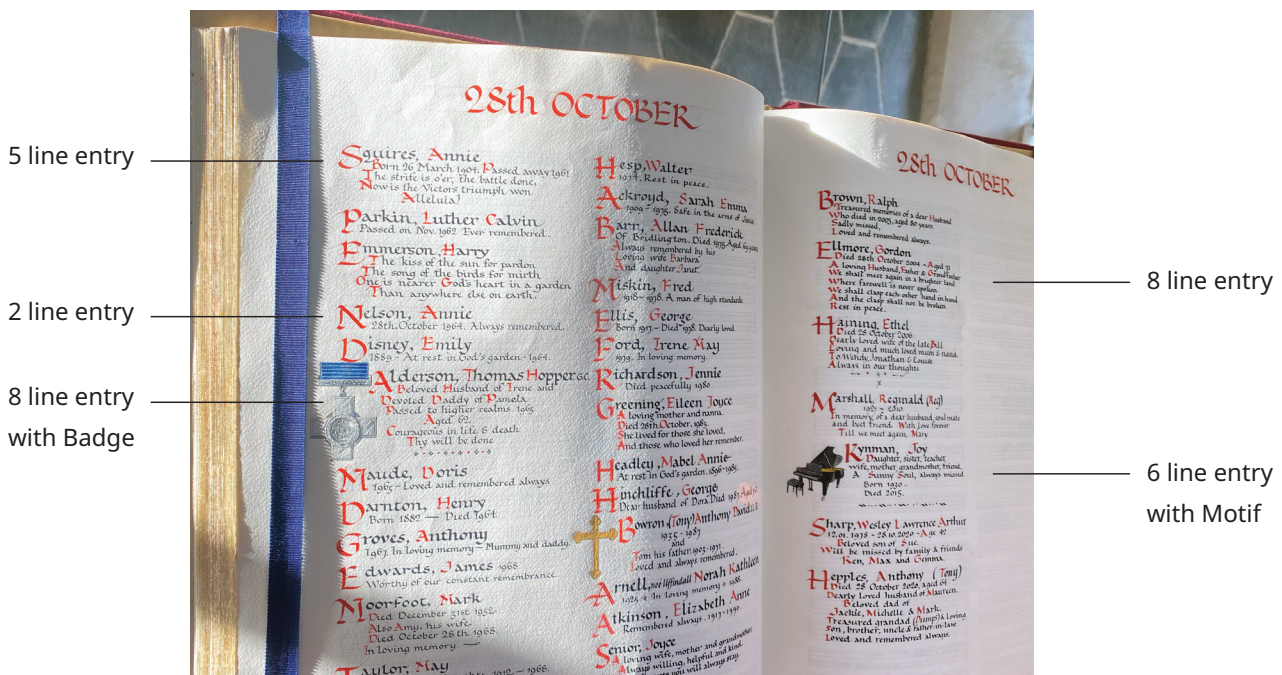 5 line entry
2 line entry
8 line entry
with Badge
28th OCTOBER
Squires, Annie
Born 26 March 1904. Passed away 1961
The strife is o'er, the battle done,
Now is the Victors triumph won
Alleluia!
Parkin, Luther Calvin
Passed on Nov. 1962. Ever remembered.
Emmerson, Harry
The kiss of the sun for pardon
The song of the birds for mirth
One is nearer God's heart in a garden
Than anywhere else on earth.
Nelson, Annie
28th. October 1964. Always remembered.
Disney, Emily
1889 - At rest in God's garden - 1964.
Alderson, Thomas Hopper GC
Beloved Husband of Irene and
Devoted Daddy of Pamela
Passed to higher realms 1965
Aged 62.
Courageous in life & death
Thy will be done
Maude, Doris
1965 - Loved and remembered always
Darnton, Henry
Born 1882 — Died 1964.
Groves, Anthony
1967. In loving memory - Mummy and daddy.
Edwards, James 1968
Worthy of our constant remembrance.
Moorfoot, Mark
Died December 31st 1952.
Also Amy, his wife.
Died October 28th. 1968.
In loving memory. —
Taylor, May
1912 - 1968.
Hesp, Walter
1974. Rest in peace.
Ackroyd, Sarah Emma
1909 - 1975. Safe in the arms of Jesus.
Barr, Allan Frederick
Of Bridlington. Died 1975. Aged 69 years
Always remembered by his
Loving wife Barbara
And daughter Janet.
Miskin, Fred
1918 - 1978. A man of high standards.
Ellis, George
Born 1917. - Died 1978. Dearly loved
Ford, Irene May
1979. In loving memory.
Richardson, Jennie
Died peacefully 1980
Greening, Eileen Joyce
A loving mother and nanna.
Died 28th. October, 1983.
She lived for those she loved,
And those who loved her remember.
Headley, Mabel Annie
At rest in God's garden. 1896-1985.
Hinchliffe, George
Dear husband of Dora. Died 1987. Aged
Bowron (Tony) Anthony David
1935 - 1987
and
Tom his father, 1903-1971.
Loved and always remembered.
Arnell, née Norah Kathleen
In loving memory 1988.
Atkinson, Elizabeth Anne
Remembered always. 1917-1990.
Senior, Joyce
A loving wife, mother and grandmother,
Always willing, helpful and kind.
you will always stay.
28th OCTOBER
Brown, Ralph
Treasured memories of a dear Husband
Who died in 2003, aged 80 years.
Sadly missed,
Loved and remembered always.
Ellmore, Gordon
Died 28th October 2004 - Aged 71
A loving Husband, Father & Grandfather
We shall meet again in a brighter land
Where farewell is never spoken
We shall clasp each other hand in hand
And the clasp shall not be broken
Rest in peace.
Haining, Ethel
Died 28 October 2006
Dearly loved wife of the late Bill
Loving and much loved mum & nana
To Wendy, Jonathan & Louise.
Always in our thoughts
x
Marshall, Reginald (Reg)
1927 - 2010
In memory of a dear husband, soul mate
and best friend. With love forever
Till we meet again, Mary
Kynman, Joy
Daughter, sister, teacher
wife, mother, grandmother, friend.
A Sunny Soul, always missed
Born 1930 -
Died 2015.
Sharp, Wesley Lawrence Arthur
12.01.1978 - 28.10.2020 - Age 42
Beloved son of Sue.
Will be missed by family & friends
Ken, Max and Gemma.
Hepples, Anthony (Tony)
Died 28 October 2020, aged 64
Dearly loved husband of Maureen.
Beloved dad of
Jackie, Michelle & Mark.
Treasured grandad (Pumps) & loving
son, brother, uncle & father-in-law
Loved and remembered always.
8 line entry
6 line entry
with Motif